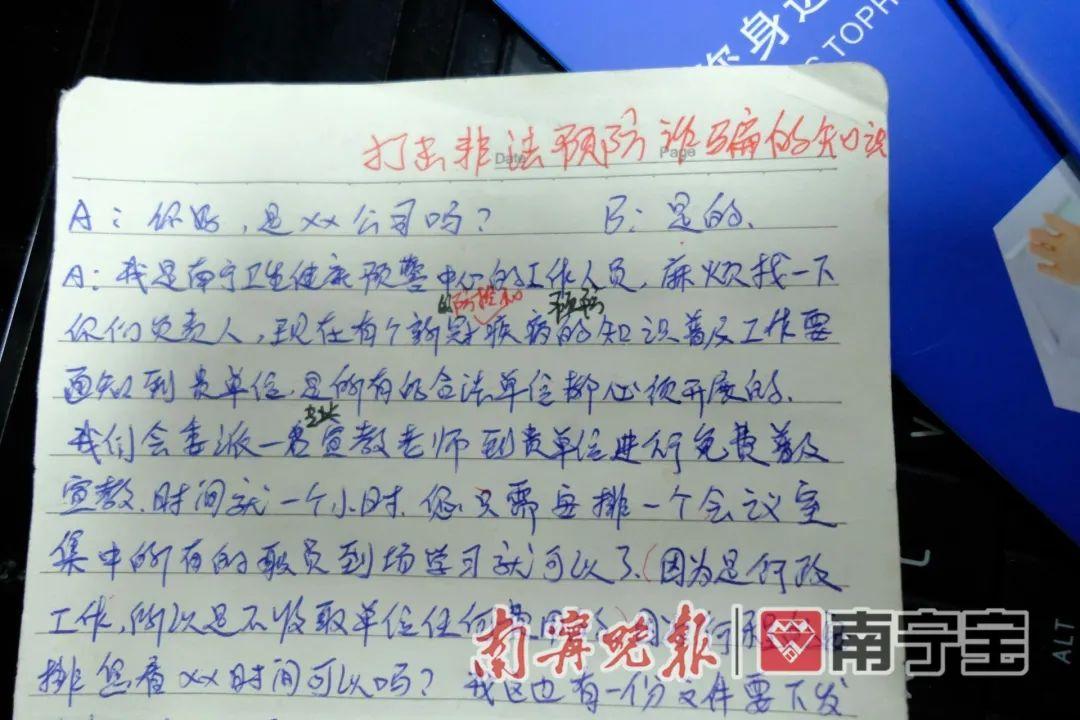 你身边
TOPH
打击非法预防诈骗的知识
Date
Page
A：你好，是xx公司吗？ B：是的、
A：我是南宁卫生健康预警中心的工作人员，麻烦找一下
的防控和 预防
你们负责人，现在有个新冠疾病的知识普及工作要
通知到贵单位、是所有的合法单位都必须开展的、
专业
我们会委派一名宣教老师到贵单位进行免费普及
宣教、时间就一个小时、您只需安排一个会议室
集中所有的职员到场学习就可以了、（因为是行政
工作，所以是不收取单位任何费用
排您看xx时间可以吗？ 我这边有一份文件要下发
南宁晚报 南宁宝
V
L
ALT